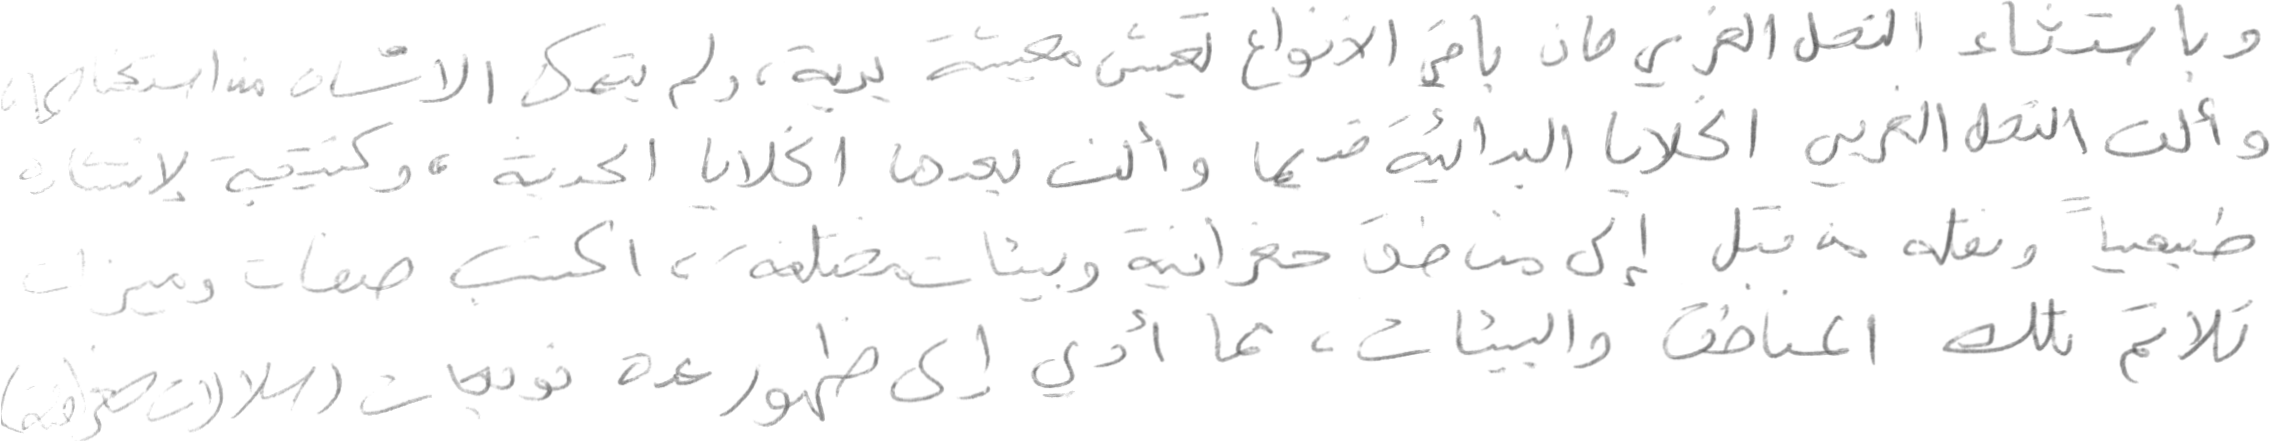 وباستثناء النحل الغربي فان باقي الأنواع تعيش معيشة برية، ولم يتمكن الانسان من استئناسها،
وألف النحل الغربي الخلايا البدائية قديما وألف بعدها الخلايا الحديثة، وكنتيجة لإنتشاره
طبيعياً ونقله من قبل إلى مناطق جغرافية وبيئات مختلفة، اكتسب صفات وميزات
تلائم تلك المناطق والبيئات، مما أدي إلى ظهور عدة نويعات (سلالات جغرافية)